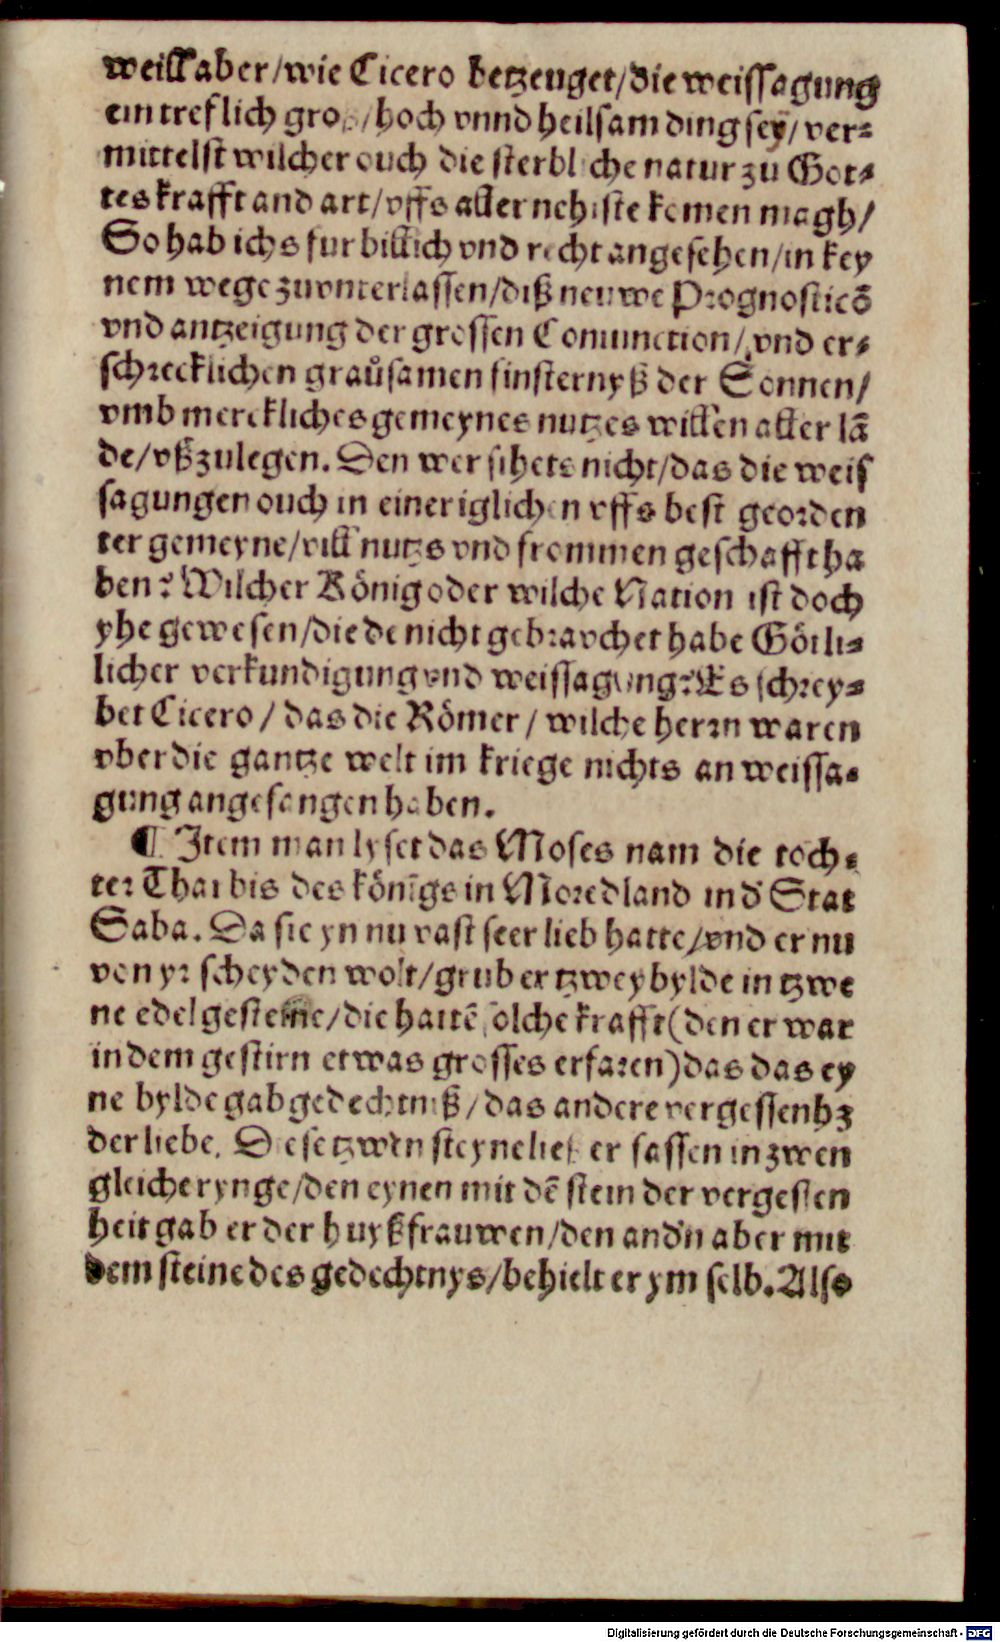 weill aber/wie Cicero betzeuget/die weissagung
ein treflich gros/hoch vnnd heilsam ding sey/ver⸗
mittelst wilcher ouch die sterbliche natur zu Got⸗
tes krafft and art/vffs aller nehiste komen magh/
So hab ichs fur billich vnd recht angesehen/in key
nem wege zuvnterlassen/diß neuwe Prognosticō
vnd antzeigung der grossen Coniunction/vnd er⸗
schrecklichen graůsamen finsternyß der Sonnen/
vmb merckliches gemeynes nutzes willen aller lā
de/vßzulegen. Den wer sihets nicht/das die weis
sagungen ouch in einer iglichen vffs best georden
ter gemeyne/vill nutzs vnd frommen geschafft ha
ben? Wilcher König oder wilche Nation ist doch
yhe gewesen/die de nicht gebrauchet habe Götli⸗
licher verkundigung vnd weissagung? Es schrey⸗
bet Cicero/das die Römer/wilche herrn waren
vber die gantze welt im kriege nichts an weissa⸗
gung angefangen haben.
¶ Item man lyset das Moses nam die toch⸗
ter Tharbis des königs in Moredland in d' Stat
Saba. Da sie yn nu vast seer lieb hatte/vnd er nu
von yr scheyden wolt/grub er tzwey bylde in tzwe
ne edelgesteine/die hattē solche krafft(den er war
in dem gestirn etwas grosses erfaren)das das ey
ne bylde gab gedechtniß/das andere vergessenhz
der liebe. Diese tzwen steyne ließ er fassen in zwen
gleiche rynge/den eynen mit dē stein der vergessen
heit gab er der huyßfrauwen/den and'n aber mit
dem steine des gedechtnys/behielt er ym selb. Also
Digitalisierung gefördert durch die Deutsche Forschungsgemeinschaft - DFG